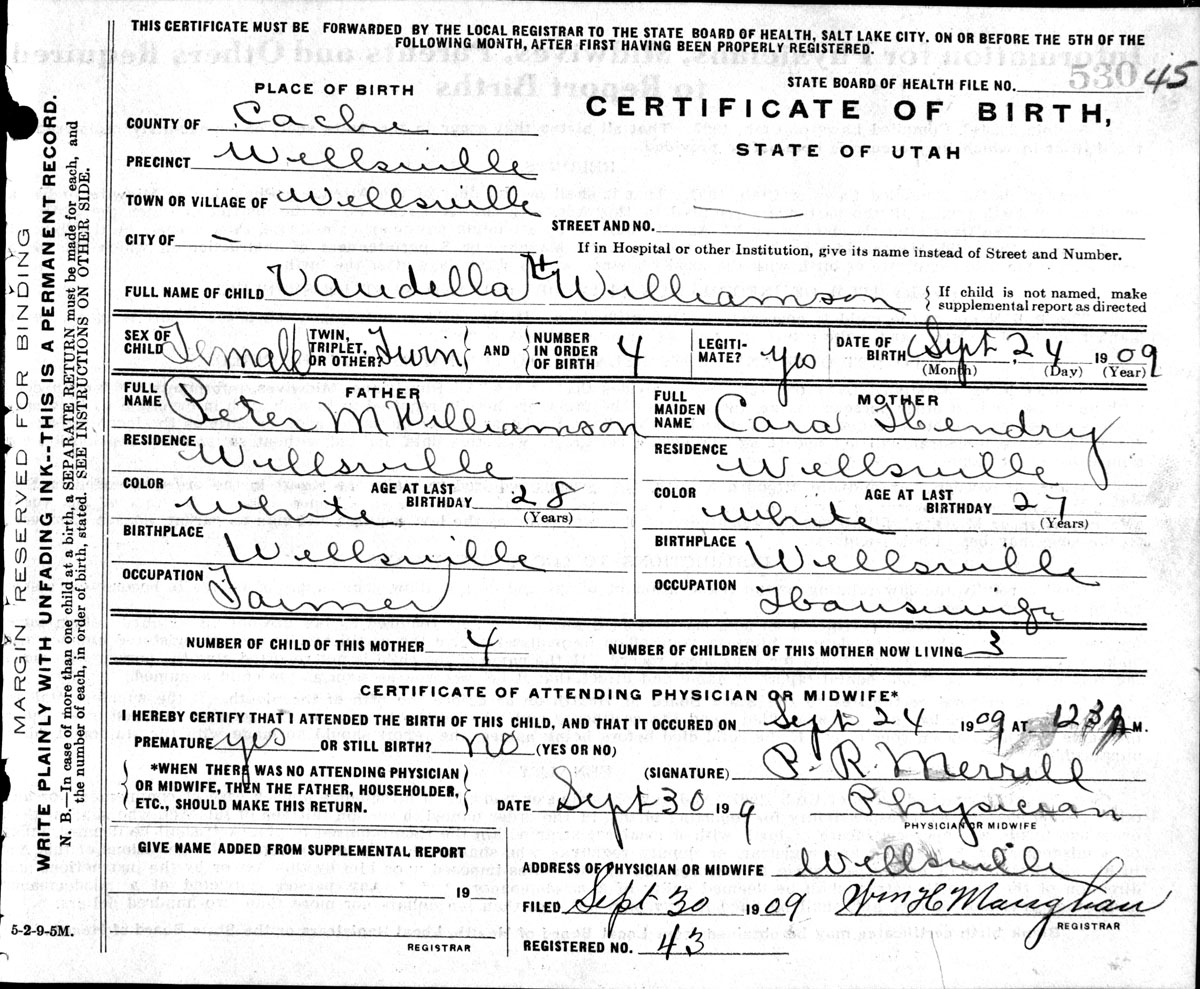 THIS CERTIFICATE MUST BE FORWARDED BY THE LOCAL REGISTRAR TO THE STATE BOARD OF HEALTH, SALT LAKE CITY. ON OR BEFORE THE 5TH OF THE
FOLLOWING MONTH, AFTER FIRST HAVING BEEN PROPERLY REGISTERED.
STATE BOARD OF HEALTH FILE NO. 530 45
PLACE OF BIRTH
CERTIFICATE OF BIRTH,
STATE OF UTAH
COUNTY OF Cache
PRECINCT Wellsville
TOWN OR VILLAGE OF Wellsville
STREET AND NO. —
CITY OF —
If in Hospital or other Institution, give its name instead of Street and Number.
FULL NAME OF CHILD Vaudella H Williamson { If child is not named, make
supplemental report as directed
SEX OF CHILD Female TWIN, TRIPLET, OR OTHER? Twin } AND { NUMBER IN ORDER OF BIRTH 4 LEGITI-MATE? yes DATE OF BIRTH Sept. 24 1909
(Month) (Day) (Year)
FATHER
FULL NAME Peter M Williamson
RESIDENCE Wellsville
COLOR White AGE AT LAST BIRTHDAY 28 (Years)
BIRTHPLACE Wellsville
OCCUPATION Farmer
MOTHER
FULL MAIDEN NAME Cara Hendry
RESIDENCE Wellsville
COLOR White AGE AT LAST BIRTHDAY 27 (Years)
BIRTHPLACE Wellsville
OCCUPATION
NUMBER OF CHILD OF THIS MOTHER 4 NUMBER OF CHILDREN OF THIS MOTHER NOW LIVING 3
CERTIFICATE OF ATTENDING PHYSICIAN OR MIDWIFE*
I HEREBY CERTIFY THAT I ATTENDED THE BIRTH OF THIS CHILD, AND THAT IT OCCURED ON Sept 24 1909 AT M.
PREMATURE yes OR STILL BIRTH? no (YES OR NO)
{ *WHEN THERE WAS NO ATTENDING PHYSICIAN
OR MIDWIFE, THEN THE FATHER, HOUSEHOLDER,
ETC., SHOULD MAKE THIS RETURN. }
(SIGNATURE) P. R. Merrill
DATE Sept 30 19 9 Physician
PHYSICIAN OR MIDWIFE
GIVE NAME ADDED FROM SUPPLEMENTAL REPORT
19
REGISTRAR
ADDRESS OF PHYSICIAN OR MIDWIFE Wellsville
FILED Sept 30 1909 Wm H Maughan
REGISTRAR
REGISTERED NO. 43
5-2-9-5M.
MARGIN RESERVED FOR BINDING
WRITE PLAINLY WITH UNFADING INK--THIS IS A PERMANENT RECORD.
N. B.—In case of more than one child at a birth, a SEPARATE RETURN must be made for each, and
the number of each, in order of birth, stated. SEE INSTRUCTIONS ON OTHER SIDE.